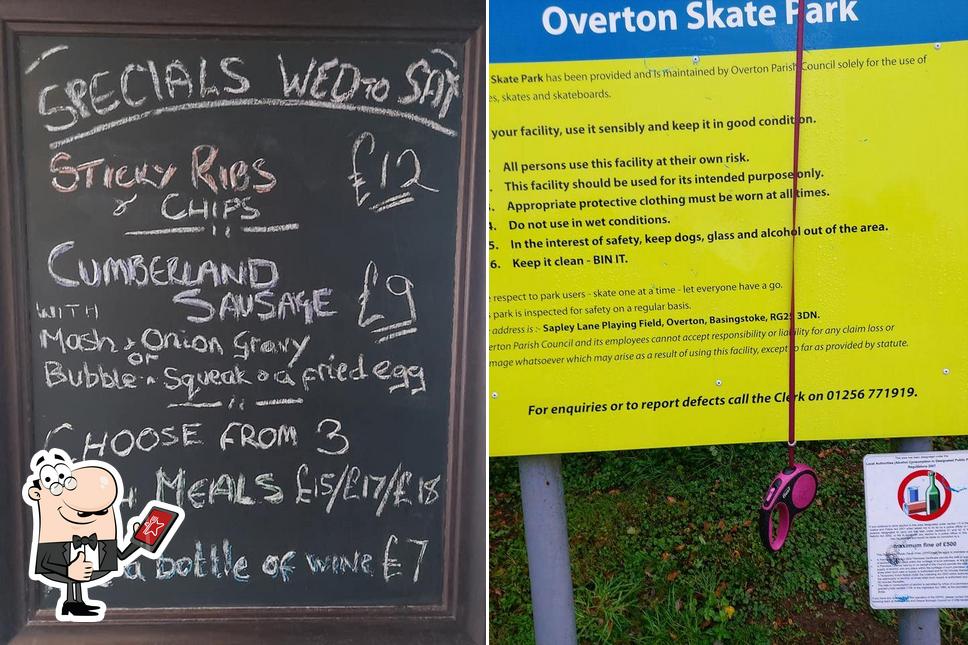 SPECIALS WED TO SAT
STICKY RIBS £12
& CHIPS
CUMBERLAND
SAUSAGE £9
WITH
Mash & Onion Gravy
or
Bubble n Squeak & a fried egg
CHOOSE FROM 3
MEALS £15/£17/£18
a bottle of wine £7
Overton Skate Park
Skate Park has been provided and is maintained by Overton Parish Council solely for the use of
es, skates and skateboards.
your facility, use it sensibly and keep it in good condition.
All persons use this facility at their own risk.
This facility should be used for its intended purpose only.
Appropriate protective clothing must be worn at all times.
4. Do not use in wet conditions.
5. In the interest of safety, keep dogs, glass and alcohol out of the area.
6. Keep it clean - BIN IT.
respect to park users - skate one at a time - let everyone have a go.
park is inspected for safety on a regular basis.
address is :- Sapley Lane Playing Field, Overton, Basingstoke, RG25 3DN.
erton Parish Council and its employees cannot accept responsibility or liability for any claim loss or
mage whatsoever which may arise as a result of using this facility, except so far as provided by statute.
For enquiries or to report defects call the Clerk on 01256 771919.
maximum fine of £500